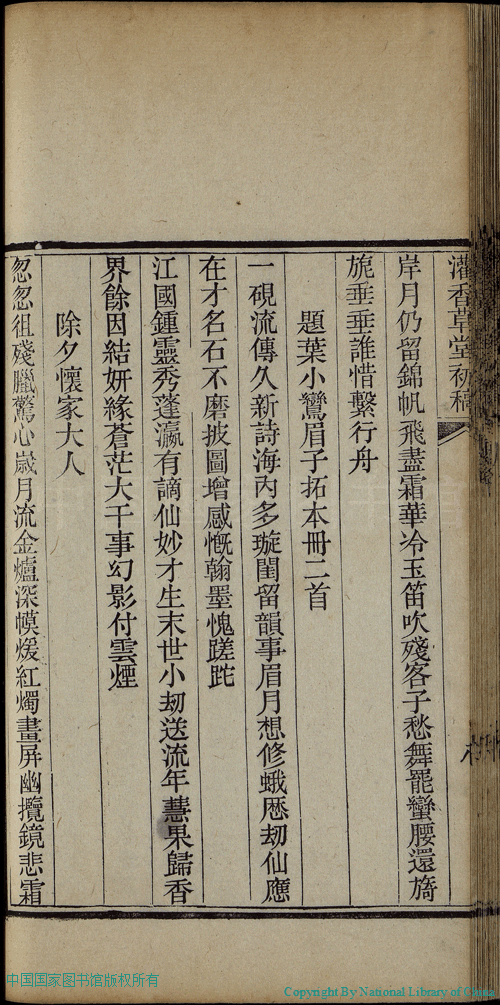 灌香草堂初稿
岸月仍留錦帆飛盡霜華冷玉笛吹殘客子愁舞罷蠻腰還旖
旎垂垂誰惜繫行舟
題葉小鸞眉子拓本冊二首
一硯流傳久新詩海內多璇閨留韻事眉月想修蛾歷劫仙應
在才名石不磨披圖增感慨翰墨愧蹉跎
江國鍾靈秀蓬瀛有謫仙妙才生末世小劫送流年慧果歸香
界餘因結妍緣蒼茫大千事幻影付雲煙
除夕懷家大人
忽忽徂殘臘驚心歲月流金爐深幙煖紅燭畫屏幽攬鏡悲霜
中国国家图书馆版权所有
Copyright By National Library of China